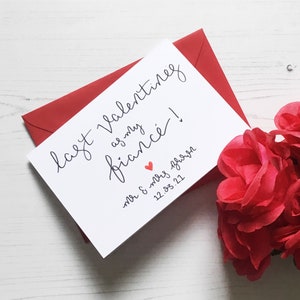 last Valentines
as my
fiancé!
mr & mrs green
12.05.21